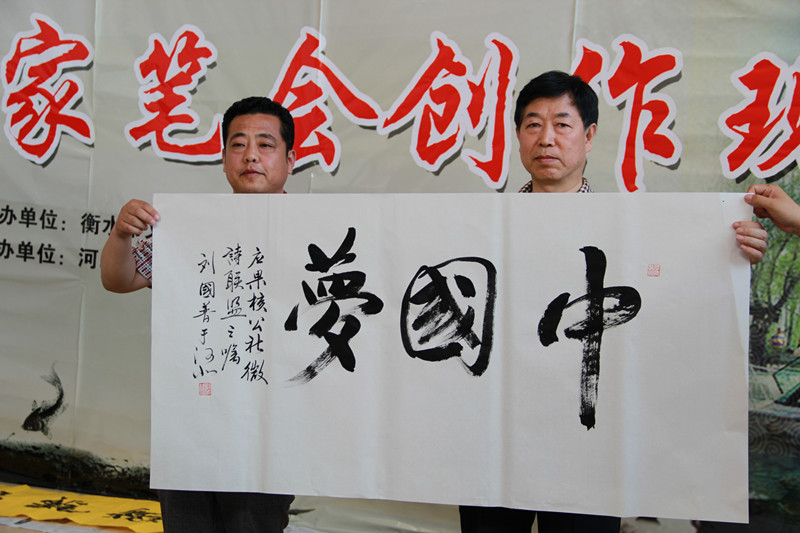 家笔会创作班
办单位：衡水
办单位：河
中國夢
应果核公社微
詩联盟之嘱
刘國普于河北